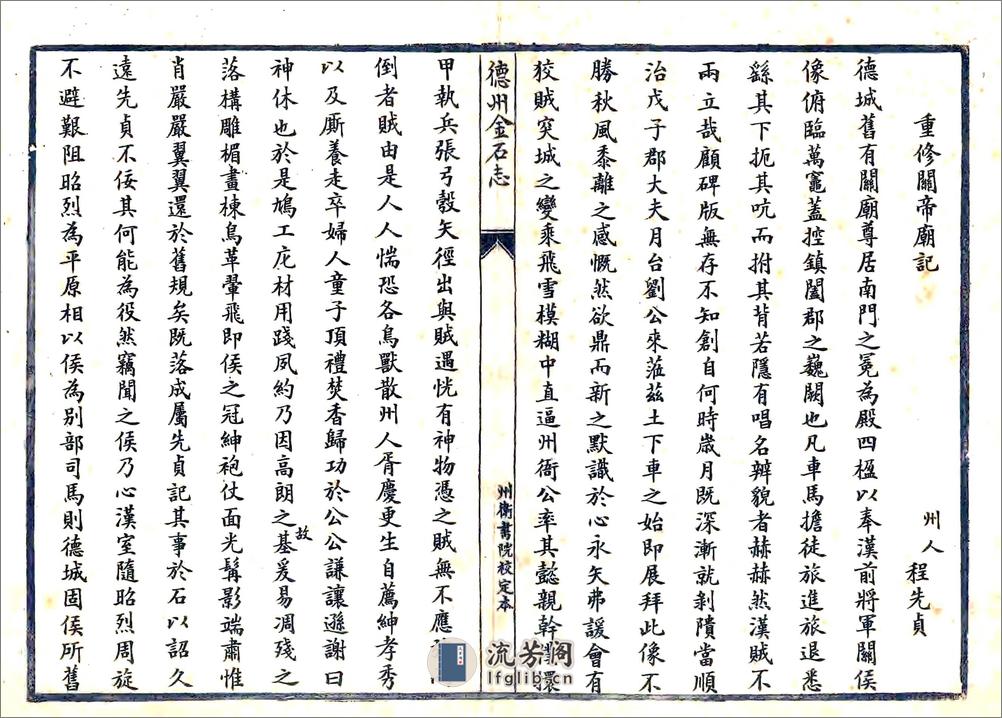 重修關帝廟記
州人 程先貞
德城舊有關廟尊居南門之冕為殿四楹以奉漢前將軍關侯
像俯臨萬竈蓋控鎮闔郡之巍闕也凡車馬擔徒旅進旅退悉
繇其下扼其吭而拊其背若隱有唱名辨貌者赫赫然漢賊不
兩立哉顧碑版無存不知創自何時歲月既深漸就剝隤當順
治戊子郡大夫月台劉公來蒞茲土下車之始即展拜此像不
勝秋風黍離之感慨然欲鼎而新之默識於心永矢弗諼會有
狡賊突城之變乘飛雪模糊中直逼州衙公率其懿親幹
德州金石志
州衛書院校定本
甲執兵張弓彀矢徑出與賊遇恍有神物憑之賊無不應
倒者賊由是人人惴恐各鳥獸散州人胥慶更生自薦紳孝秀
以及廝養走卒婦人童子頂禮焚香歸功於公公謙讓遜謝曰
神休也於是鳩工庀材用踐夙約乃因高朗之故基爰易凋殘之
落構雕楣畫棟鳥革翬飛即侯之冠紳袍仗面光髯影端肅惟
肖嚴嚴翼翼還於舊規矣既落成屬先貞記其事於石以詔久
遠先貞不佞其何能為役然竊聞之侯乃心漢室隨昭烈周旋
不避艱阻昭烈為平原相以侯為別部司馬則德城固侯所舊
流芳閣
lfglib.cn